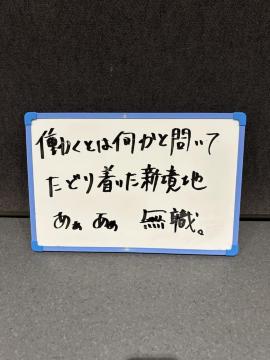 働くとは何かと問いて
たどり着いた新境地
あぁ あぁ 無職。